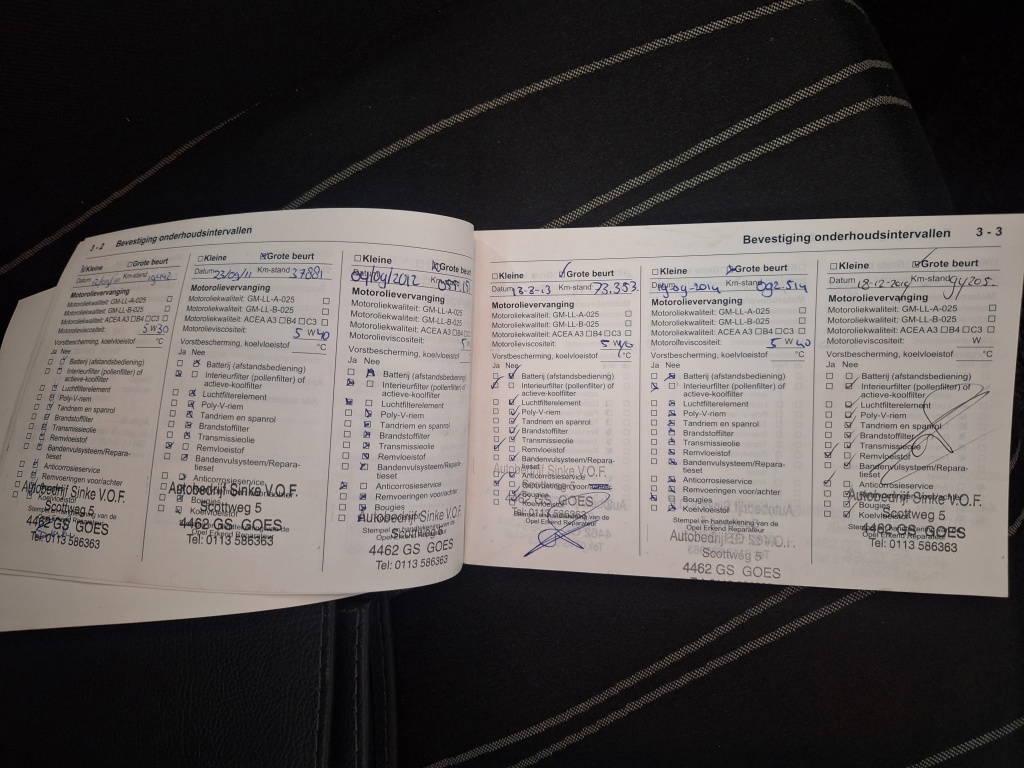 3 - 2 Bevestiging onderhoudsintervallen
Kleine Grote beurt
Datum Km-stand
Motorolievervanging
Motoroliekwaliteit: GM-LL-A-025
Motoroliekwaliteit: GM-LL-B-025
Motoroliekwaliteit: ACEA A3 B4 C3
Motorolieviscositeit: 5 W 30
Vorstbescherming, koelvloeistof °C
Ja Nee
Batterij (afstandsbediening)
Interieurfilter (pollenfilter) of
actieve-koolfilter
Luchtfilterelement
Poly-V-riem
Tandriem en spanrol
Brandstoffilter
Transmissieolie
Remvloeistof
Bandenvulsysteem/Repara-
tieset
Anticorrosieservice
Autobedrijf Sinke V.O.F.
Scottweg 5
4462 GS GOES
Tel: 0113 586363
Kleine Grote beurt
Datum 23/09/11 Km-stand 37881
Motorolievervanging
Motoroliekwaliteit: GM-LL-A-025
Motoroliekwaliteit: GM-LL-B-025
Motoroliekwaliteit: ACEA A3 B4 C3
Motorolieviscositeit: 5 W 40
Vorstbescherming, koelvloeistof °C
Ja Nee
Batterij (afstandsbediening)
Interieurfilter (pollenfilter) of
actieve-koolfilter
Luchtfilterelement
Poly-V-riem
Tandriem en spanrol
Brandstoffilter
Transmissieolie
Remvloeistof
Bandenvulsysteem/Repara-
tieset
Anticorrosieservice
Autobedrijf Sinke V.O.F.
Bougies
Scottweg 5
Koelvloeistof
4462 GS GOES
Tel: 0113 586363
Kleine Grote beurt
04/09/2012 Km-stand
Motorolievervanging
Motoroliekwaliteit: GM-LL-A-025
Motoroliekwaliteit: GM-LL-B-025
Motoroliekwaliteit: ACEA A3 B4
Motorolieviscositeit: 5
Vorstbescherming, koelvloeistof
Ja Nee
Batterij (afstandsbediening)
Interieurfilter (pollenfilter) of
actieve-koolfilter
Luchtfilterelement
Poly-V-riem
Tandriem en spanrol
Brandstoffilter
Transmissieolie
Remvloeistof
Bandenvulsysteem/Repara-
tieset
Anticorrosieservice
Remvoeringen voor/achter
Bougies
Autobedrijf Sinke V.O.F.
Scottweg 5
4462 GS GOES
Tel: 0113 586363
Bevestiging onderhoudsintervallen 3 - 3
Kleine Grote beurt
Datum 13-2-13 Km-stand 73.353
Motorolievervanging
Motoroliekwaliteit: GM-LL-A-025
Motoroliekwaliteit: GM-LL-B-025
Motoroliekwaliteit: ACEA A3 B4 C3
Motorolieviscositeit: 5 W
Vorstbescherming, koelvloeistof °C
Ja Nee
Batterij (afstandsbediening)
Interieurfilter (pollenfilter) of
actieve-koolfilter
Luchtfilterelement
Poly-V-riem
Tandriem en spanrol
Brandstoffilter
Transmissieolie
Remvloeistof
Bandenvulsysteem/Repara-
tieset
Autobedrijf Sinke V.O.F.
Anticorrosieservice
Remvoeringen voor/achter
Bougies
4462 GS GOES
Tel: 0113 586363
Stempel en handtekening van de
Opel Erkend Reparateur
Kleine Grote beurt
Datum Km-stand 092.514
Motorolievervanging
Motoroliekwaliteit: GM-LL-A-025
Motoroliekwaliteit: GM-LL-B-025
Motoroliekwaliteit: ACEA A3 B4 C3
Motorolieviscositeit: 5 W 40
Vorstbescherming, koelvloeistof °C
Ja Nee
Batterij (afstandsbediening)
Interieurfilter (pollenfilter) of
actieve-koolfilter
Luchtfilterelement
Poly-V-riem
Tandriem en spanrol
Brandstoffilter
Transmissieolie
Remvloeistof
Bandenvulsysteem/Repara-
tieset
Anticorrosieservice
Remvoeringen voor/achter
Bougies
Koelvloeistof
Stempel en handtekening van de
Opel Erkend Reparateur
Autobedrijf Sinke V.O.F.
Scottweg 5
4462 GS GOES
Kleine Grote beurt
Datum 18-12-2014 Km-stand 94205.
Motorolievervanging
Motoroliekwaliteit: GM-LL-A-025
Motoroliekwaliteit: GM-LL-B-025
Motoroliekwaliteit: ACEA A3 B4 C3
Motorolieviscositeit: W
Vorstbescherming, koelvloeistof °C
Ja Nee
Batterij (afstandsbediening)
Interieurfilter (pollenfilter) of
actieve-koolfilter
Luchtfilterelement
Poly-V-riem
Tandriem en spanrol
Brandstoffilter
Transmissieolie
Remvloeistof
Bandenvulsysteem/Repara-
tieset
Anticorrosieservice
Autobedrijf Sinke V.O.F.
Bougies
Scottweg 5
Koelvloeistof
4462 GS GOES
Tel: 0113 586363